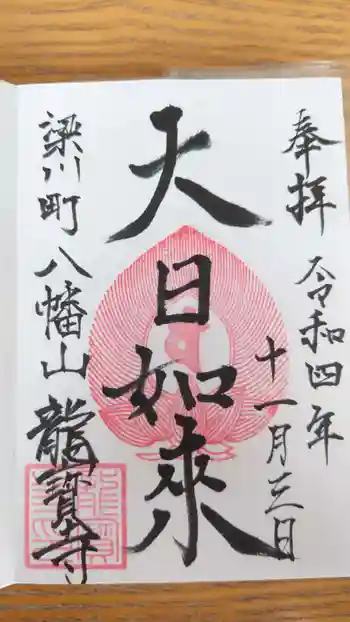 奉拝 令和四年
十一月三日
大日如来
梁川町 八幡山 龍寶寺